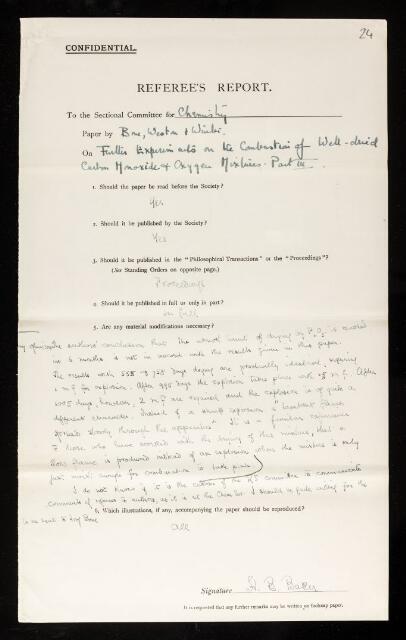 24
CONFIDENTIAL.
REFEREE'S REPORT.
To the Sectional Committee for Chemistry
Paper by Bone, Weston & Winter.
On Further Experiments on the Combustion of Well-dried
Carbon Monoxide & Oxygen Mixtures. Part III.
1. Should the paper be read before the Society?
Yes
2. Should it be published by the Society?
Yes
3. Should it be published in the "Philosophical Transactions" or the "Proceedings"?
(See Standing Orders on opposite page.)
Proceedings
4. Should it be published in full or only in part?
in full
5. Are any material modifications necessary?
the authors' conclusion that the utmost limit of drying by P2O5 is reached
in 6 months is not in accord with the results given in this paper.
The results with 558 & 728 days drying are practically identical, requiring
m.f. for explosion. After 995 days the explosion takes place with m.f. After
days, however, 2 m.f. are required and the explosion is of quite a
different character. Instead of a sharp explosion a "lambent flame
spread slowly through the apparatus". It is a familiar experience
to those who have worked with the drying of this mixture, that a
slow flame is produced instead of an explosion when the mixture is only
just moist enough for combustion to take place.
I do not know if it is the custom of the R.S. committee to communicate
comments of referees to authors, as it is in the Chem Soc. I should be glad, for the
to be sent to Prof Bone
6. Which illustrations, if any, accompanying the paper should be reproduced?
all
Signature H. B. Baker
It is requested that any further remarks may be written on foolscap paper.